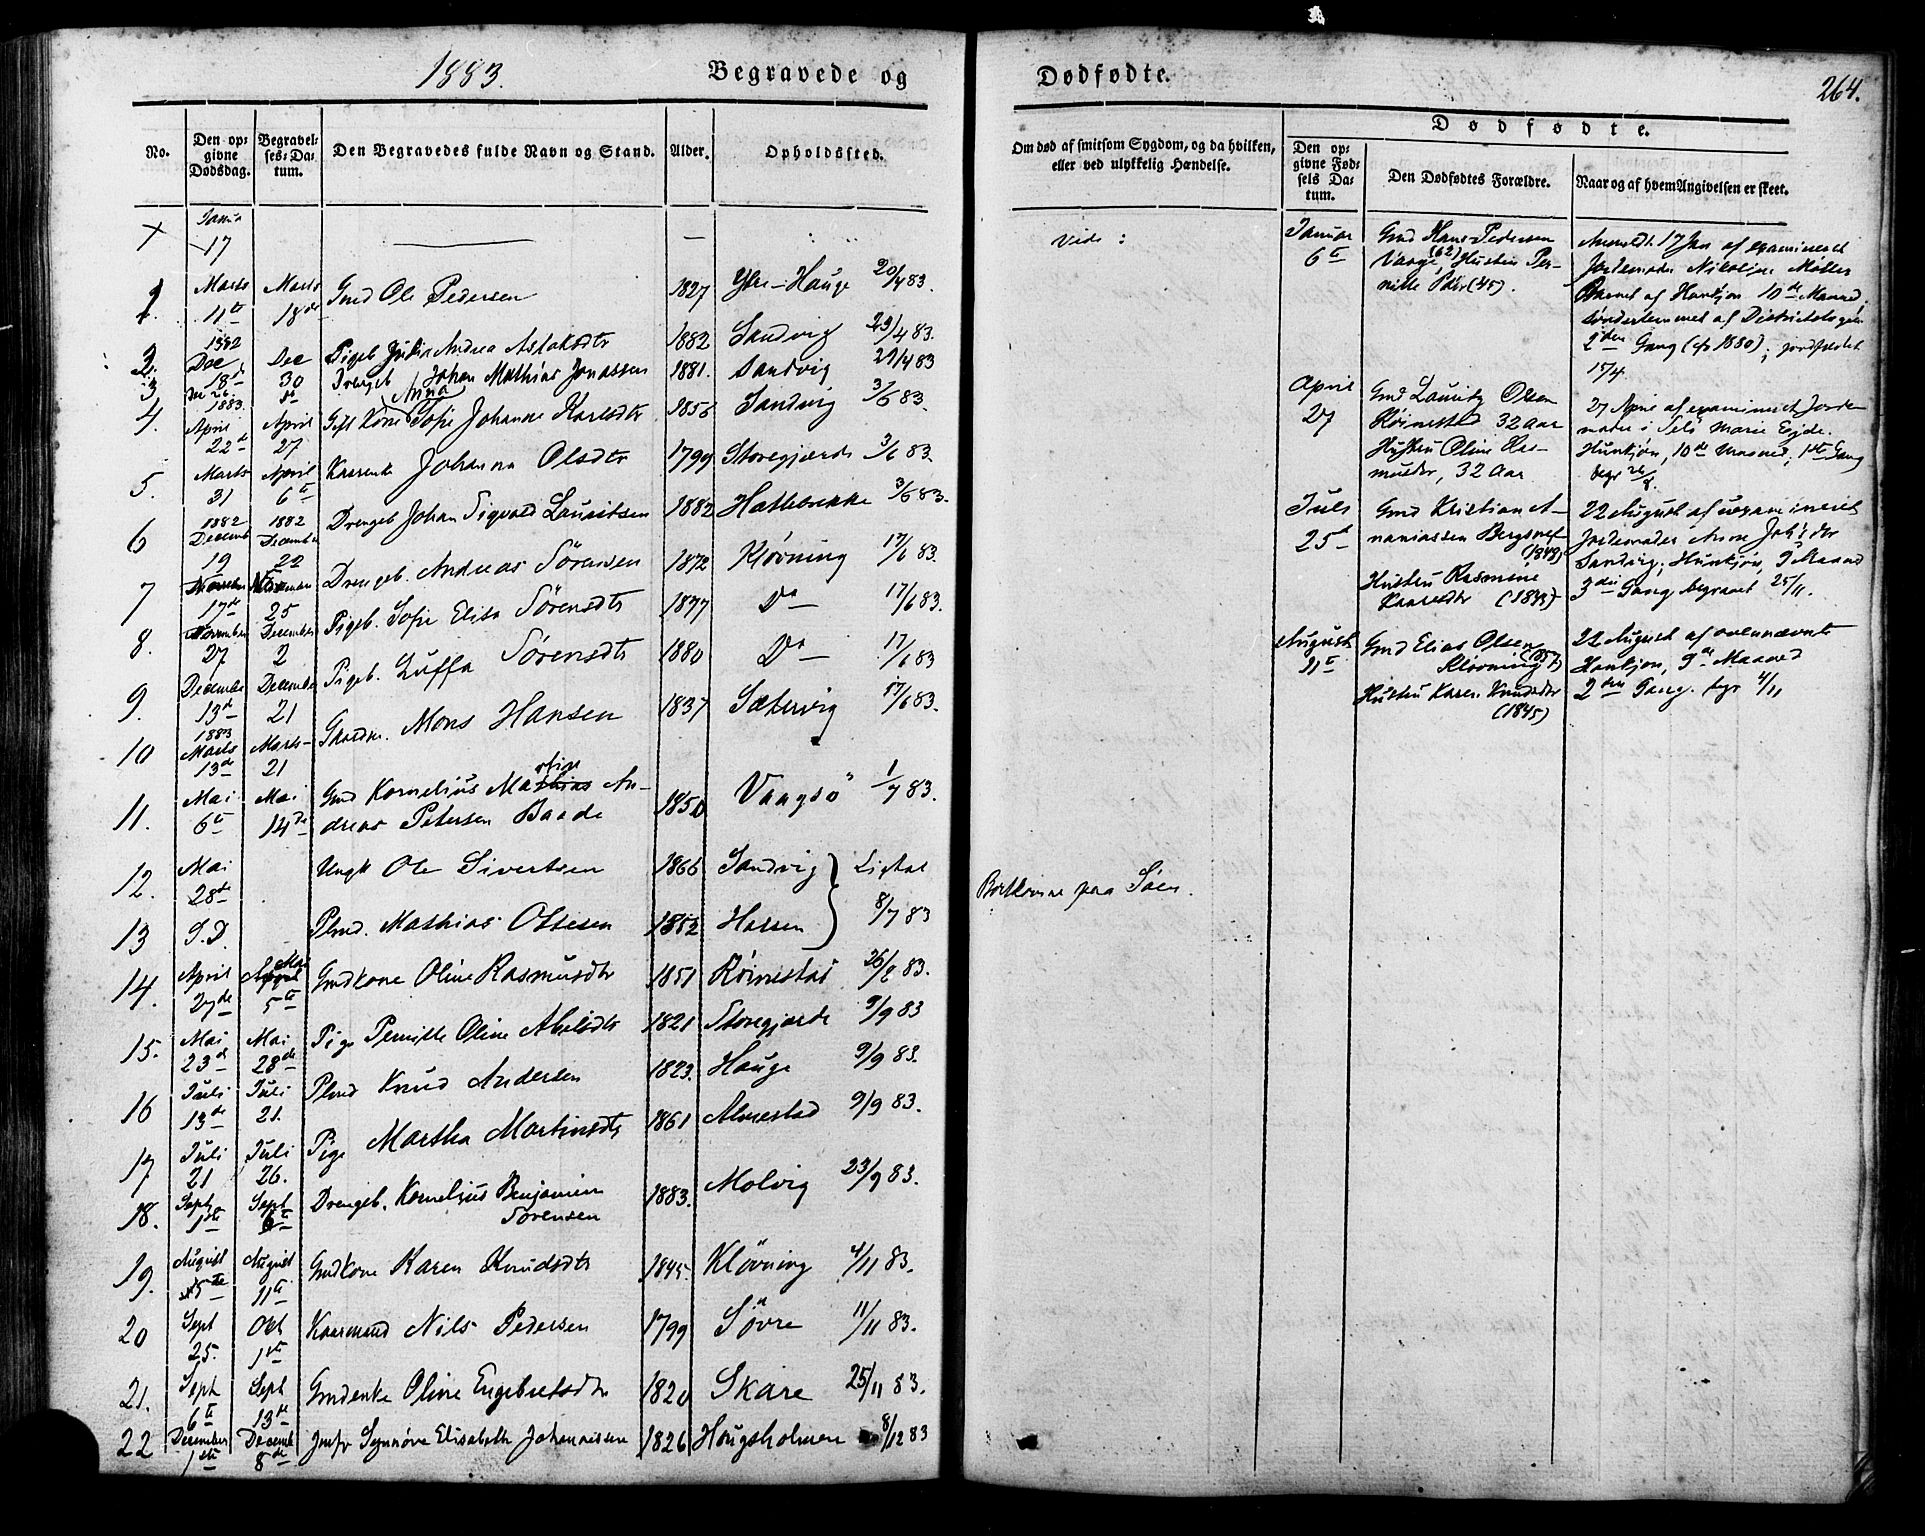 1883. Begravede og
No. Den opgivne Dødsdag. Begravelses-Datum. Den Begravedes fulde Navn og Stand. Alder. Opholdssted.
17
1 Marts 11te Marts 18de Gmd Ole Pedersen 1827 Ytre-Hauge 20/4 83.
2. 1882 Dec 18de Dec 30 Pigeb. Andrea 1882 Sandvig 29/4 83.
3 Dec 26 Drengeb Johan Mathias Jonassen 1881. Sandvig 29/4 83
4. 1883. April 22de April 27 Gift Kone Anna Sofie Johanne Karlsdtr 1856 Sandvig 3/6 83.
5. Marts 31 April 6te Kaarenke Johanna Olsdtr 1799 Storegjærde 3/6 83.
6 1882 Decemb 19 1882 December 22 Drengeb Johan Sigvald Lauritsen 1882 Hattebrekke 3/6 83.
7 November 17de November 25 Drengeb. Andreas Sörensen 1872 Kløvning 17/6 83.
8. November 27 December 2 Pigeb. Sofie Elisa Sörensdtr 1877 Do 17/6 83.
9. December 13de December 21 Pigeb. Luffa Sörensdtr 1880 Do 17/6 83
10 1883 Marts 13de Marts 21 Mons Hansen 1837 Sætervig 17/6 83.
11. Mai 6te Mai 14de Gmd Kornelius An-
dreas Petersen Baade 1850 Vaagsö 1/7 83.
12. Mai 28de Ungk Ole Sivertsen 1866 Sandvig
13 S.D. Plmd. Mathias Ottesen 1852 8/7 83
14. April 27de Mai 5te Gmdkone Oline Rasmusdtr 1851 Röinestad 26/8 83.
15. Mai 23de Mai 28de Pige Pernille Oline Abelsdtr 1821 Storegjærde 9/9 83
16 Juli 13de Juli 21. Plmd Knud Andersen 1823. Hauge 9/9 83.
17 Juli 21 Juli 26. Pige Martha Martinsdtr 1861 9/9 83.
18. Sept 1ste Sept 6te Drengeb. Kornelius Benjamin
Sörensen 1883. Molvig 23/9 83.
19. August 5te August 11te Gmdkone Karen Knudsdtr 1845. Klövning 4/11 83.
20 Sept 25. Okt 1ste Kaarmand Nils Pedersen 1799 Sövre 11/11 83.
21. Sept 6te Sept 13de Gmdenke Oline Engebretsdtr 1820 Skare 25/11 83.
22 December 1ste December 8de Jmfr Synnöve Elisabeth Johannesen 1826 Hougsholmen 8/12 83
Dødfødte. 264.
Om død af smitsom Sygdom, og da hvilken,
eller ved ulykkelig Hændelse.
Dødfødte.
Den opgivne Fødsels Datum. Den Dødfødtes Forældre. Naar og af hvem Angivelsen er skeet.
Vide:
Januar 6te Gmd Hans Pedersen
Vaage (62) Hustru Per-
nille Pdtr (45).
Anmeldt 17 Jan af examineret
Jordemoder Nikoline Møller
Barnet af Hankjön 10de Maaned,
sönderlemmet af Districtslægen
2den Gang (cfr 1880); jordfæstet
15/4.
April 27 Gmd Lauritz Olsen
Röinestad 32 Aar
Hustru Oline Ras-
musdtr, 32 Aar
27 April af examineret Jorde-
moder i Selö Marie Ejde.
Hunkjön, 10de Maaned, 1ste Gang
begr 26/8.
Juli 25de Gmd Kristian A-
naniassen Bergsnef
(1848)
Hustru Rasmine
Kaaresdtr (1843)
22 August af examineret
Jordemoder Anne
Sandvig; Hunkjön, 9 Maaned
3die Gang, begravet 25/11.
August 11te Gmd Elias Olsen
Kløvning
Hustru Karen Knudsdtr
(1845)
22 August af ovennævnte
Hankjön, 9de Maaned
2den Gang. begr 4/11
Bortkomne paa Söen.